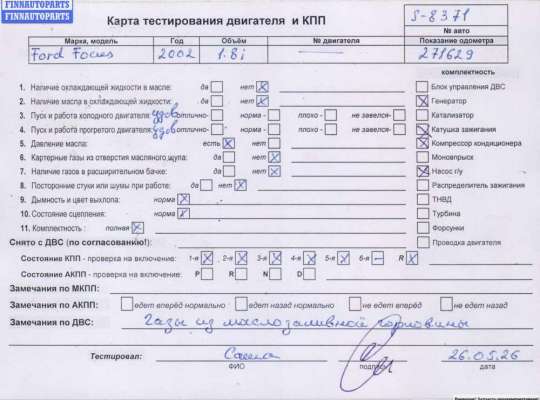 FINNAUTOPARTS
FINNAUTOPARTS
Карта тестирования двигателя и КПП
S-8371
№ авто
Марка, модель Год Объём № двигателя Показание одометра
Ford Focus 2002 1.8i 271629
комплектность
1. Наличие охлаждающей жидкости в масле: да нет Блок управления ДВС
2. Наличие масла в охлаждающей жидкости: да нет Генератор
3. Пуск и работа холодного двигателя: удов отлично- норма - плохо - не завелся- Катализатор
4. Пуск и работа прогретого двигателя: удов отлично- норма - плохо - не завелся- Катушка зажигания
5. Давление масла: есть нет Компрессор кондиционера
6. Картерные газы из отверстия масляного щупа: да нет Моновпрыск
7. Наличие газов в расширительном бачке: да нет Насос г/у
8. Посторонние стуки или шумы при работе: да нет Распределитель зажигания
9. Дымность и цвет выхлопа: норма ТНВД
10. Состояние сцепления: норма Турбина
11. Комплектность : полная Форсунки
Снято с ДВС (по согласованию!): Проводка двигателя
Состояние КПП - проверка на включение: 1-я 2-я 3-я 4-я 5-я 6-я R
Состояние АКПП - проверка на включение: P R N D
Замечания по МКПП:
Замечания по АКПП: едет вперёд нормально едет назад нормально не едет вперёд не едет назад
Замечания по ДВС: Газы из маслозаливной горловины
Тестировал: Саша 26.05.26
ФИО подпись дата